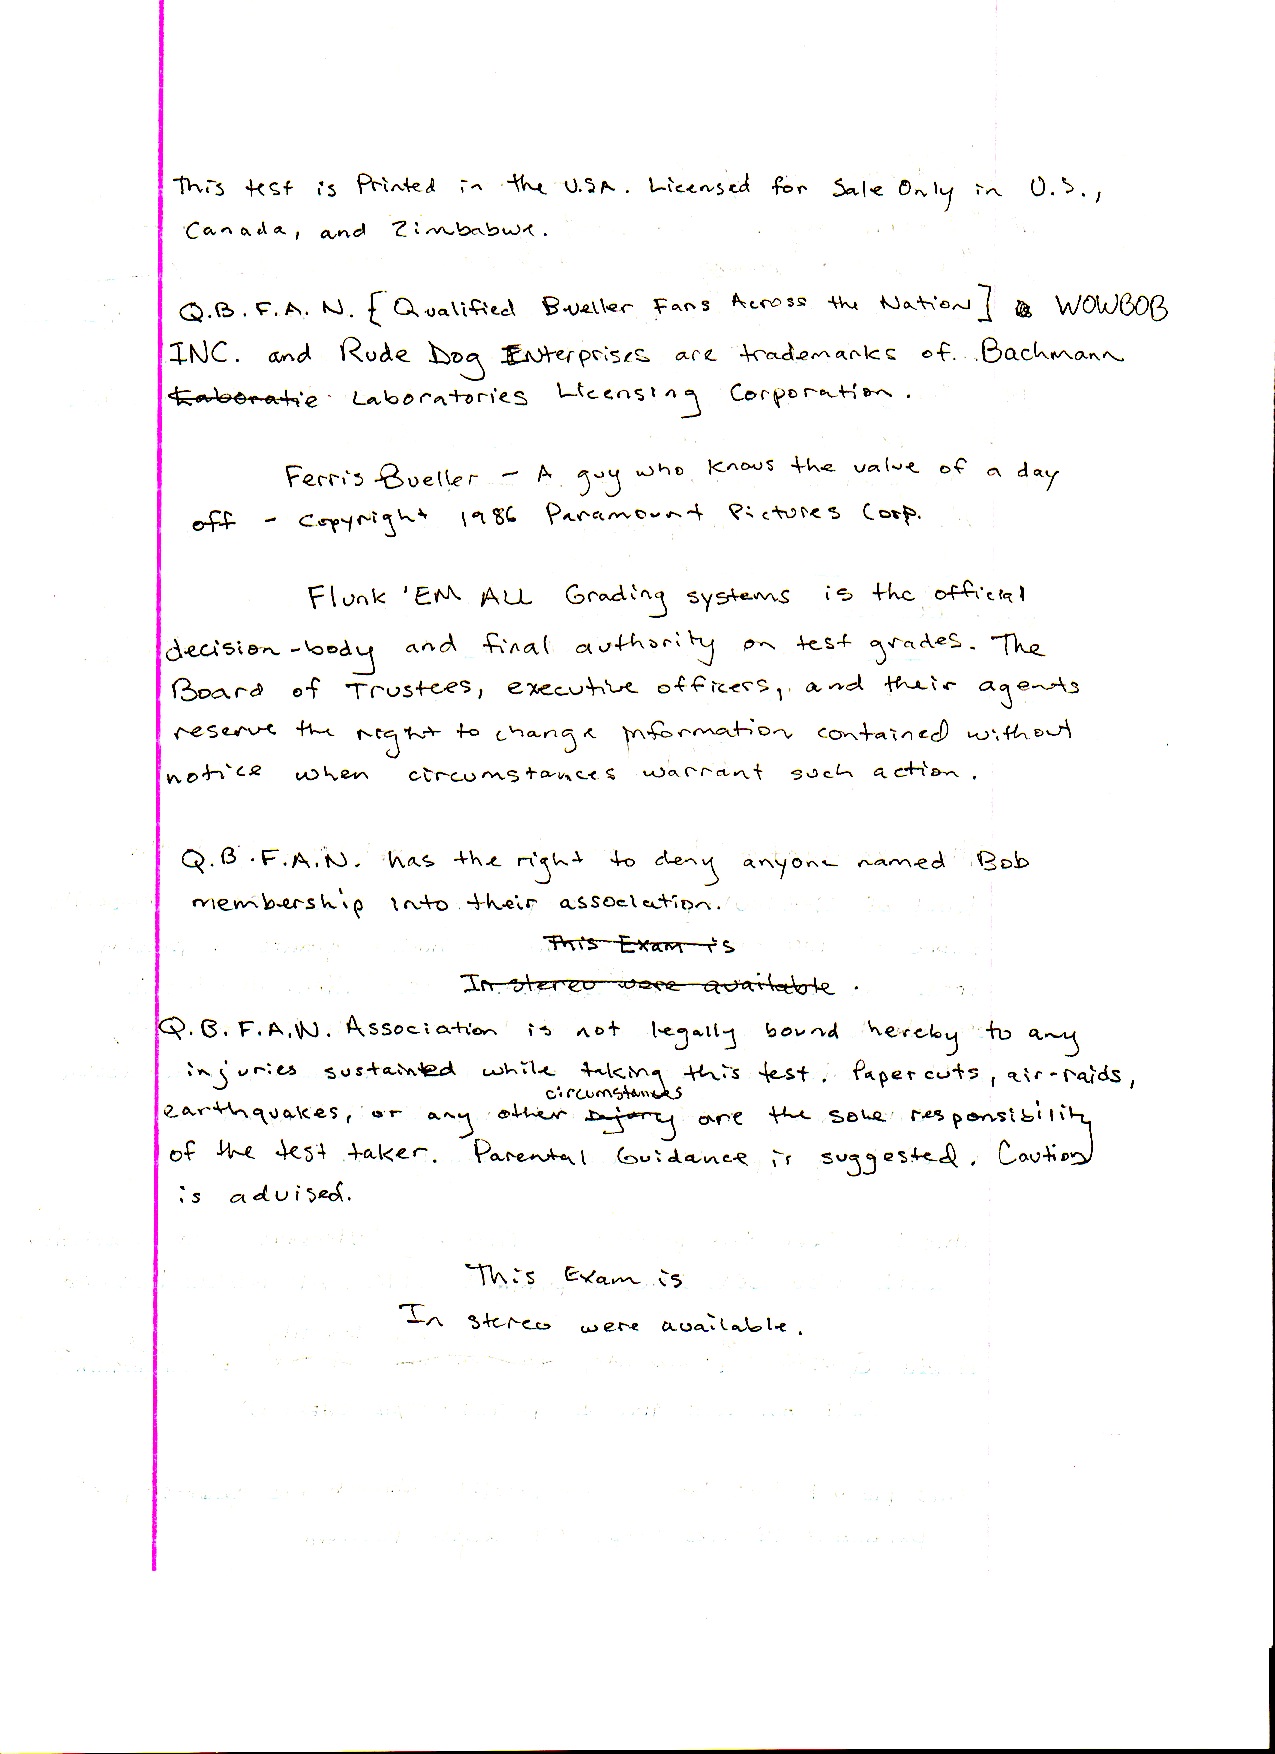 This test is Printed in the U.S.A. Licensed for Sale Only in U.S.,
Canada, and Zimbabwe.
Q.B.F.A.N. [Qualified Bueller Fans Across the Nation] WOWBOB
INC. and Rude Dog Enterprises are trademarks of Bachmann
Laboratie Laboratories Licensing Corporation.
Ferris Bueller - A guy who knows the value of a day
off - Copyright 1986 Paramount Pictures Corp.
Flunk 'EM ALL Grading systems is the official
decision-body and final authority on test grades. The
Board of Trustees, executive officers, and their agents
reserve the right to change information contained without
notice when circumstances warrant such action.
Q.B.F.A.N. has the right to deny anyone named Bob
membership into their association.
This Exam is
In stereo were available.
Q.B.F.A.N. Association is not legally bound hereby to any
injuries sustained while taking this test. Papercuts, air-raids,
circumstances
earthquakes, or any other injury are the sole responsibility
of the test taker. Parental Guidance is suggested. Caution
is advised.
This Exam is
In stereo were available.